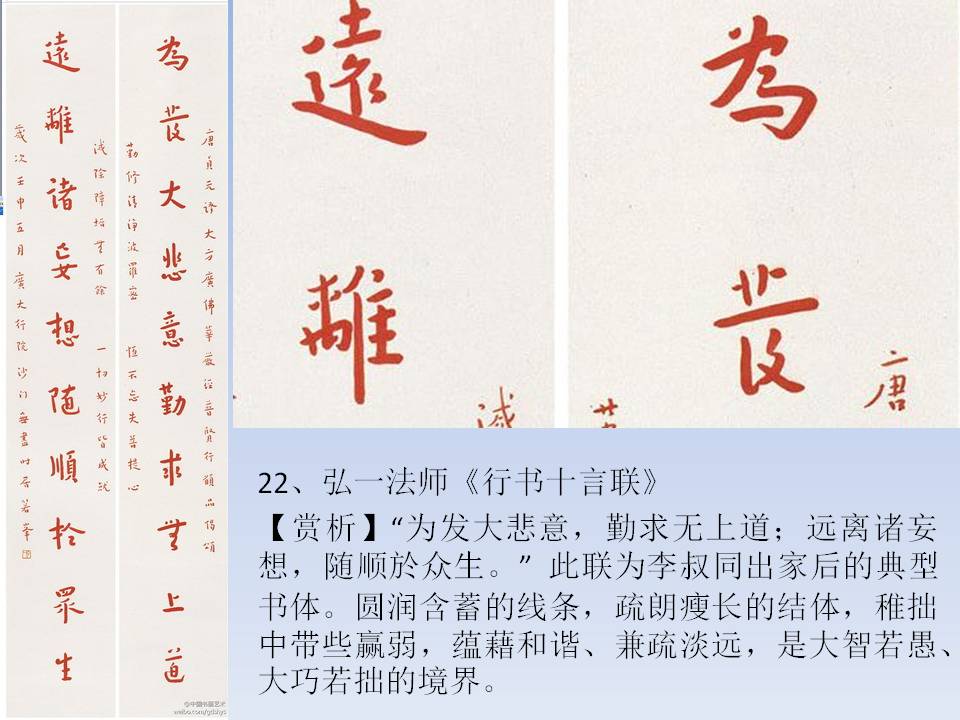 唐貞元譯大方廣佛華嚴經普賢行願品偈頌
為發大悲意勤求無上道
勤修清淨波羅蜜 恆不忘失菩提心
滅除障垢無有餘 一切妙行皆成就
遠離諸妄想隨順於眾生
歲次壬申五月廣大行院沙門無盡時居
@中国书画艺术
weibo.com/gdshys
為發
唐
遠離
滅
22、弘一法师《行书十言联》
【赏析】“为发大悲意，勤求无上道；远离诸妄
想，随顺於众生。” 此联为李叔同出家后的典型
书体。圆润含蓄的线条，疏朗瘦长的结体，稚拙
中带些赢弱，蕴藉和谐、兼疏淡远，是大智若愚、
大巧若拙的境界。